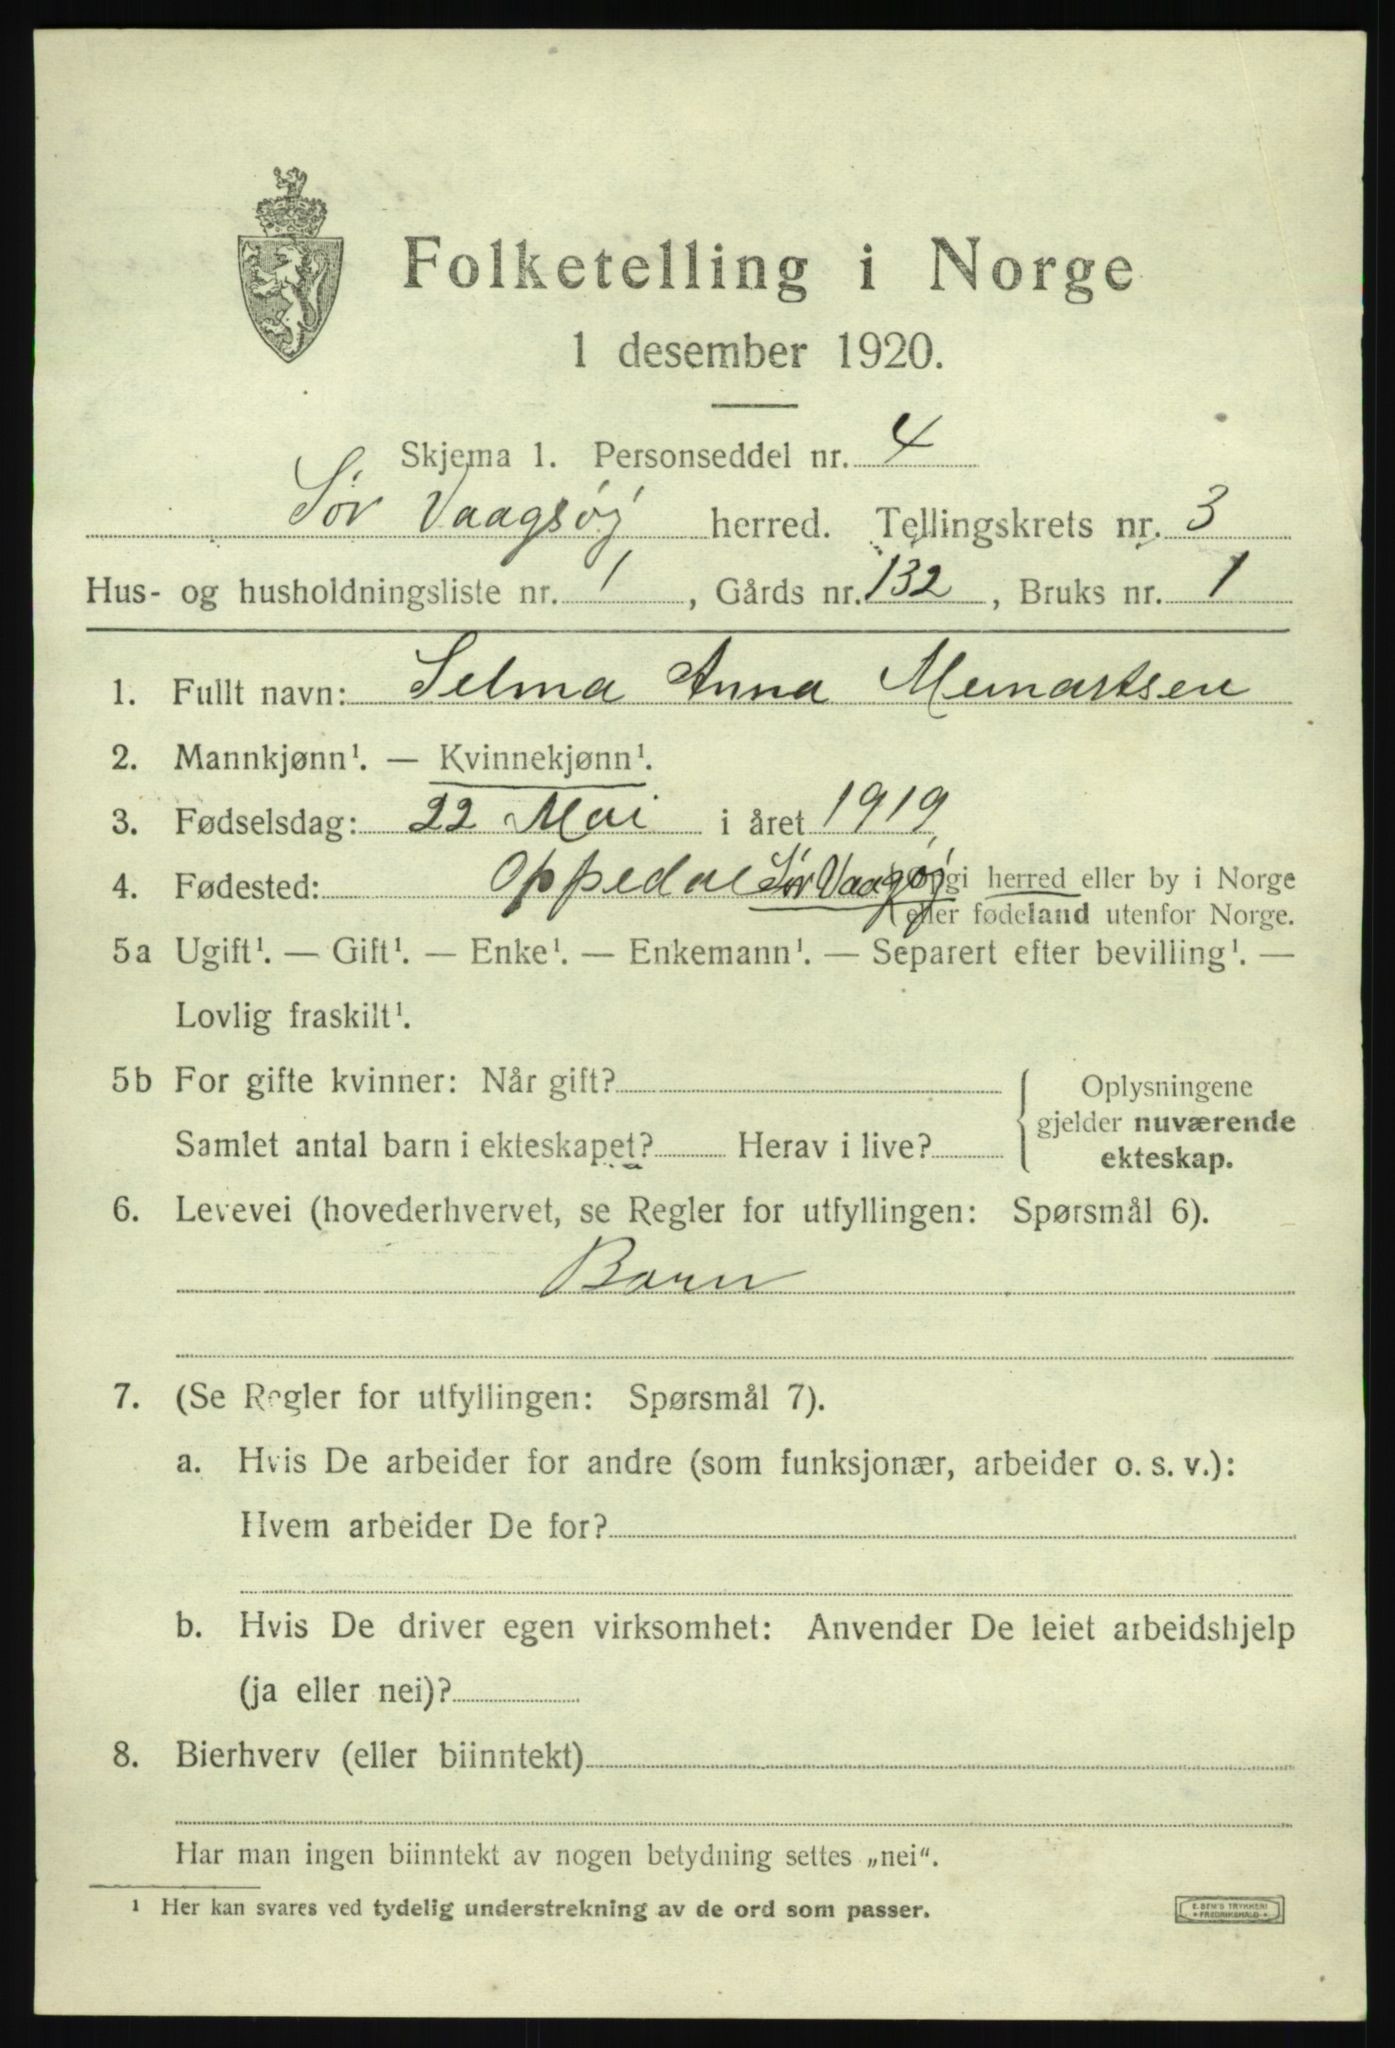 Folketelling i Norge
1 desember 1920.
Skjema 1. Personseddel nr. 4
Sør Vaagsøy herred. Tellingskrets nr. 3
Hus- og husholdningsliste nr. 1, Gårds nr. 132, Bruks nr. 1
1. Fullt navn: Selma Anna
2. Mannkjønn¹. — Kvinnekjønn¹.
3. Fødselsdag: 22 Mai i året 1919
4. Fødested: Oppedal Sør Vaagsøy i herred eller by i Norge
eller fødeland utenfor Norge.
5a Ugift¹. — Gift¹. — Enke¹. — Enkemann¹. — Separert efter bevilling¹. —
Lovlig fraskilt¹.
5b For gifte kvinner: Når gift?
Samlet antal barn i ekteskapet? Herav i live?
Oplysningene
gjelder nuværende
ekteskap.
6. Levevei (hovederhvervet, se Regler for utfyllingen: Spørsmål 6).
Barn
7. (Se Regler for utfyllingen: Spørsmål 7).
a. Hvis De arbeider for andre (som funksjonær, arbeider o. s. v.):
Hvem arbeider De for?
b. Hvis De driver egen virksomhet: Anvender De leiet arbeidshjelp
(ja eller nei)?
8. Bierhverv (eller biinntekt)
Har man ingen biinntekt av nogen betydning settes „nei“.
¹ Her kan svares ved tydelig understrekning av de ord som passer.
E. SEM'S TRYKKERI
FREDRIKSHALD